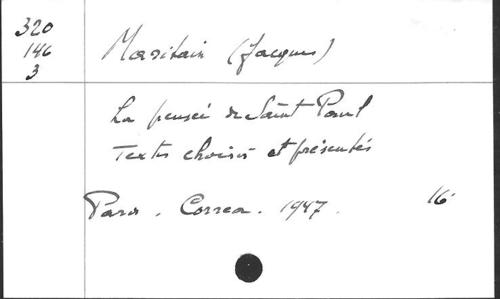 320
146
3
Maritain (Jacques)
La pensée de Saint Paul
Textes choisis et présentés
Paris. Correa. 1947. 16°